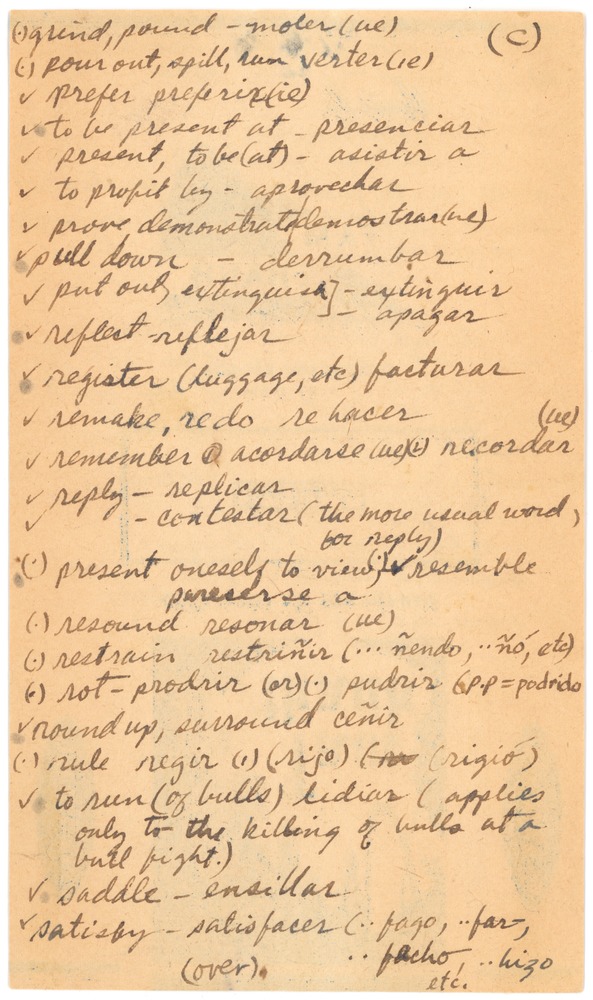 (·) grind, pound - moler (ue) (C)
(·) pour out, spill, run verter (ie)
✓ prefer preferir (ie)
✓ to be present at - presenciar
✓ present, to be (at) - asistir a
✓ to profit by - aprovechar
✓ prove demonstrate demostrar (ue)
✓ pull down - derrumbar
✓ put out, extinguish] - extinguir
- apagar
✓ reflect - reflejar
✓ register (luggage, etc) facturar
✓ remake, redo rehacer (ue)
✓ remember acordarse (ue) (·) recordar
✓ reply - replicar
✓ - contestar (the more usual word
for reply)
(·) present oneself to view; ✓ resemble
parecerse a
(·) resound resonar (ue)
(·) restrain restriñir (... ñendo, ..ñó, etc)
(·) rot - prodrir (or) (·) pudrir (p.p = podrido
✓ round up, surround ceñir
(·) rule regir (i) (rijo) (rigió)
✓ to run (of bulls) lidiar (applies
only to the killing of bulls at a
bull fight.)
✓ saddle - ensillar
✓ satisfy - satisfacer (..fago, ..far-,
..facho, ..hizo
(over). etc.